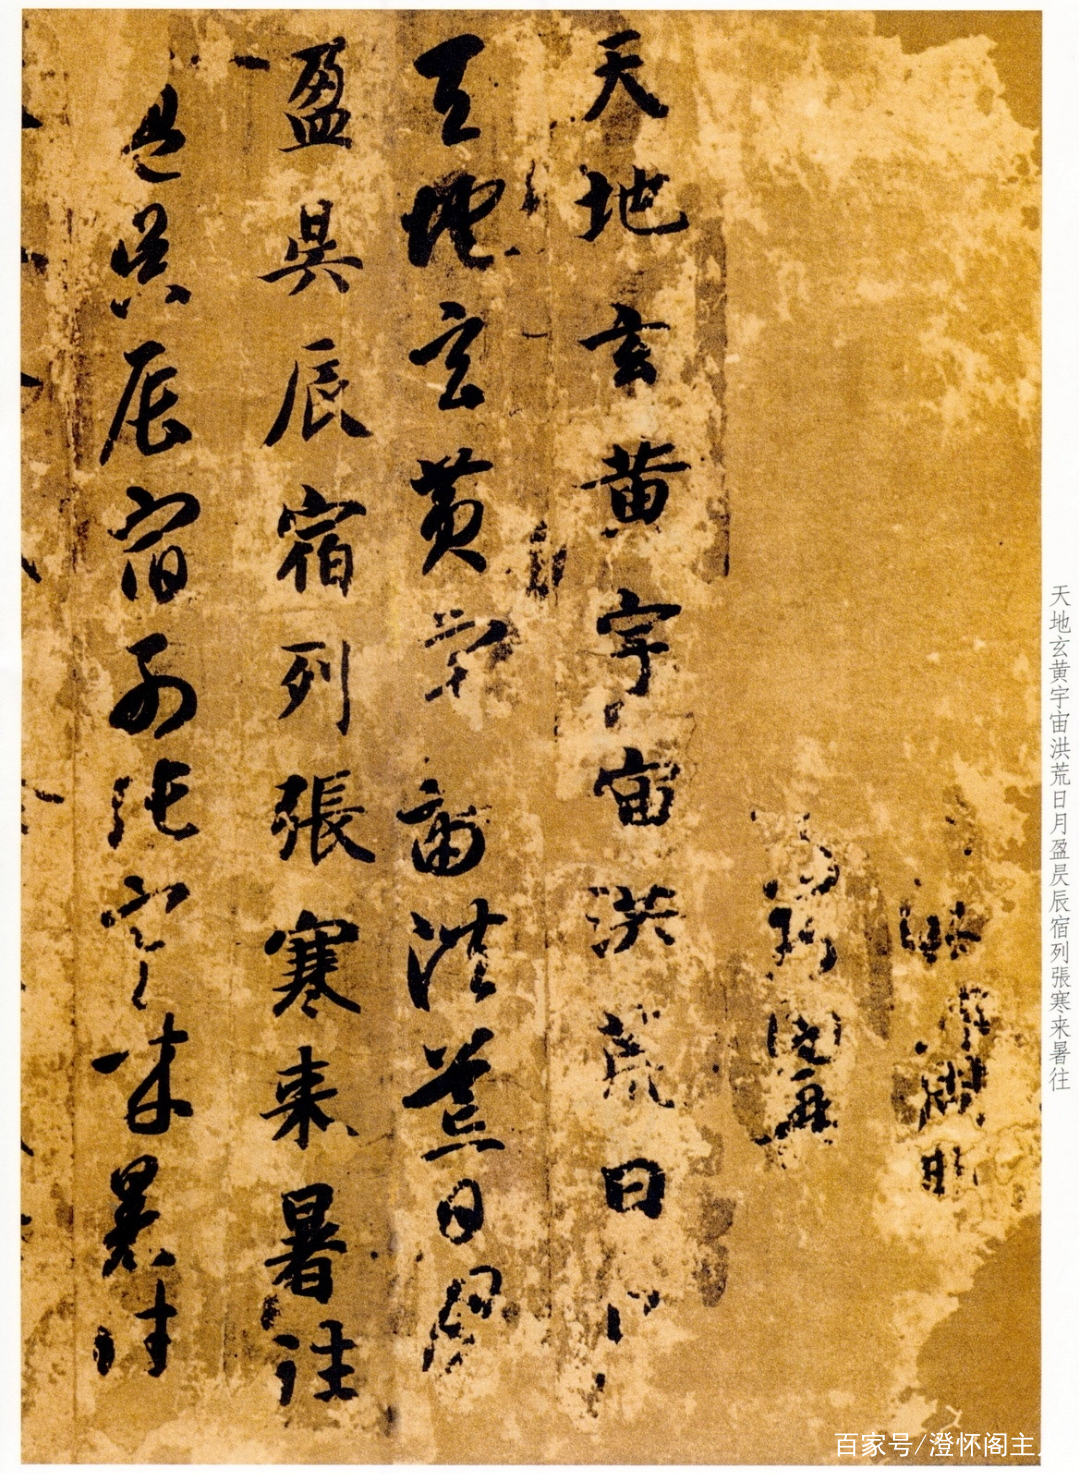 天地玄黄宇宙洪荒日月盈昃辰宿列張寒来暑往
天地玄黄宇宙洪荒日
天地玄黄宇宙洪荒日月
盈昃辰宿列張寒来暑往
盈昃辰宿列張寒来暑往
百家号/澄怀阁主